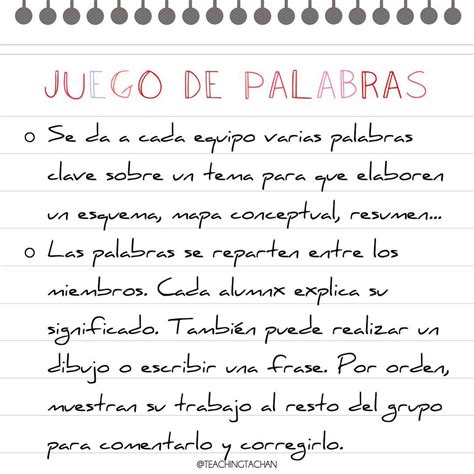 JUEGO DE PALABRAS
Se da a cada equipo varias palabras
clave sobre un tema para que elaboren
un esquema, mapa conceptual, resumen...
Las palabras se reparten entre los
miembros. Cada alumnx explica su
significado. También puede realizar un
dibujo o escribir una frase. Por orden,
muestran su trabajo al resto del grupo
para comentarlo y corregirlo.
@TEACHINGTACHAN